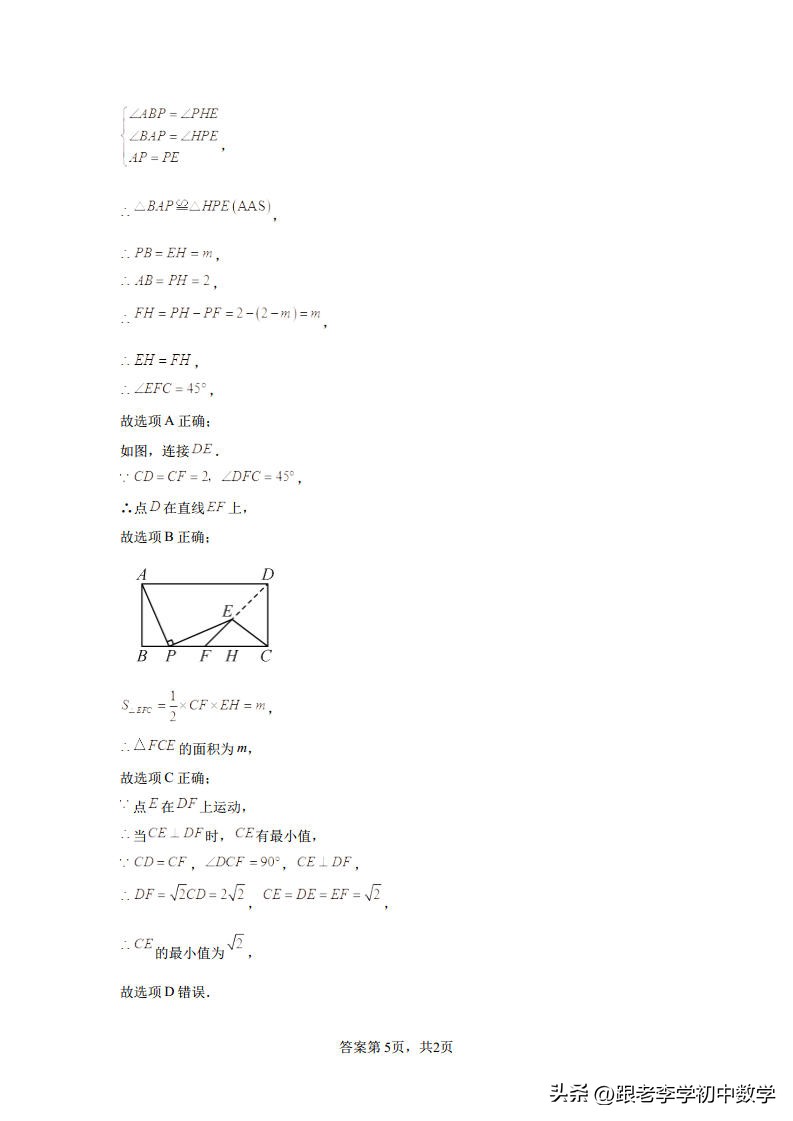 ∠ABP = ∠PHE
∠BAP = ∠HPE
AP = PE
，
∴ △BAP≌△HPE(AAS)，
∴ PB = EH = m，
∴ AB = PH = 2，
∴ FH = PH − PF = 2−(2−m) = m，
∴ EH = FH，
∴ ∠EFC = 45°，
故选项 A 正确；
如图，连接 DE．
∵ CD = CF = 2，∠DFC = 45°，
∴点 D 在直线 EF 上，
故选项 B 正确；
A D
E
B P F H C
S△EFC = 1/2 × CF × EH = m，
∴ △FCE 的面积为 m，
故选项 C 正确；
∵ 点 E 在 DF 上运动，
∴ 当 CE ⊥ DF 时，CE 有最小值，
∵ CD = CF，∠DCF = 90°，CE ⊥ DF，
∴ DF = √2CD = 2√2，CE = DE = EF = √2，
∴ CE 的最小值为 √2，
故选项 D 错误．
答案第 5页，共2页
头条 @跟老李学初中数学